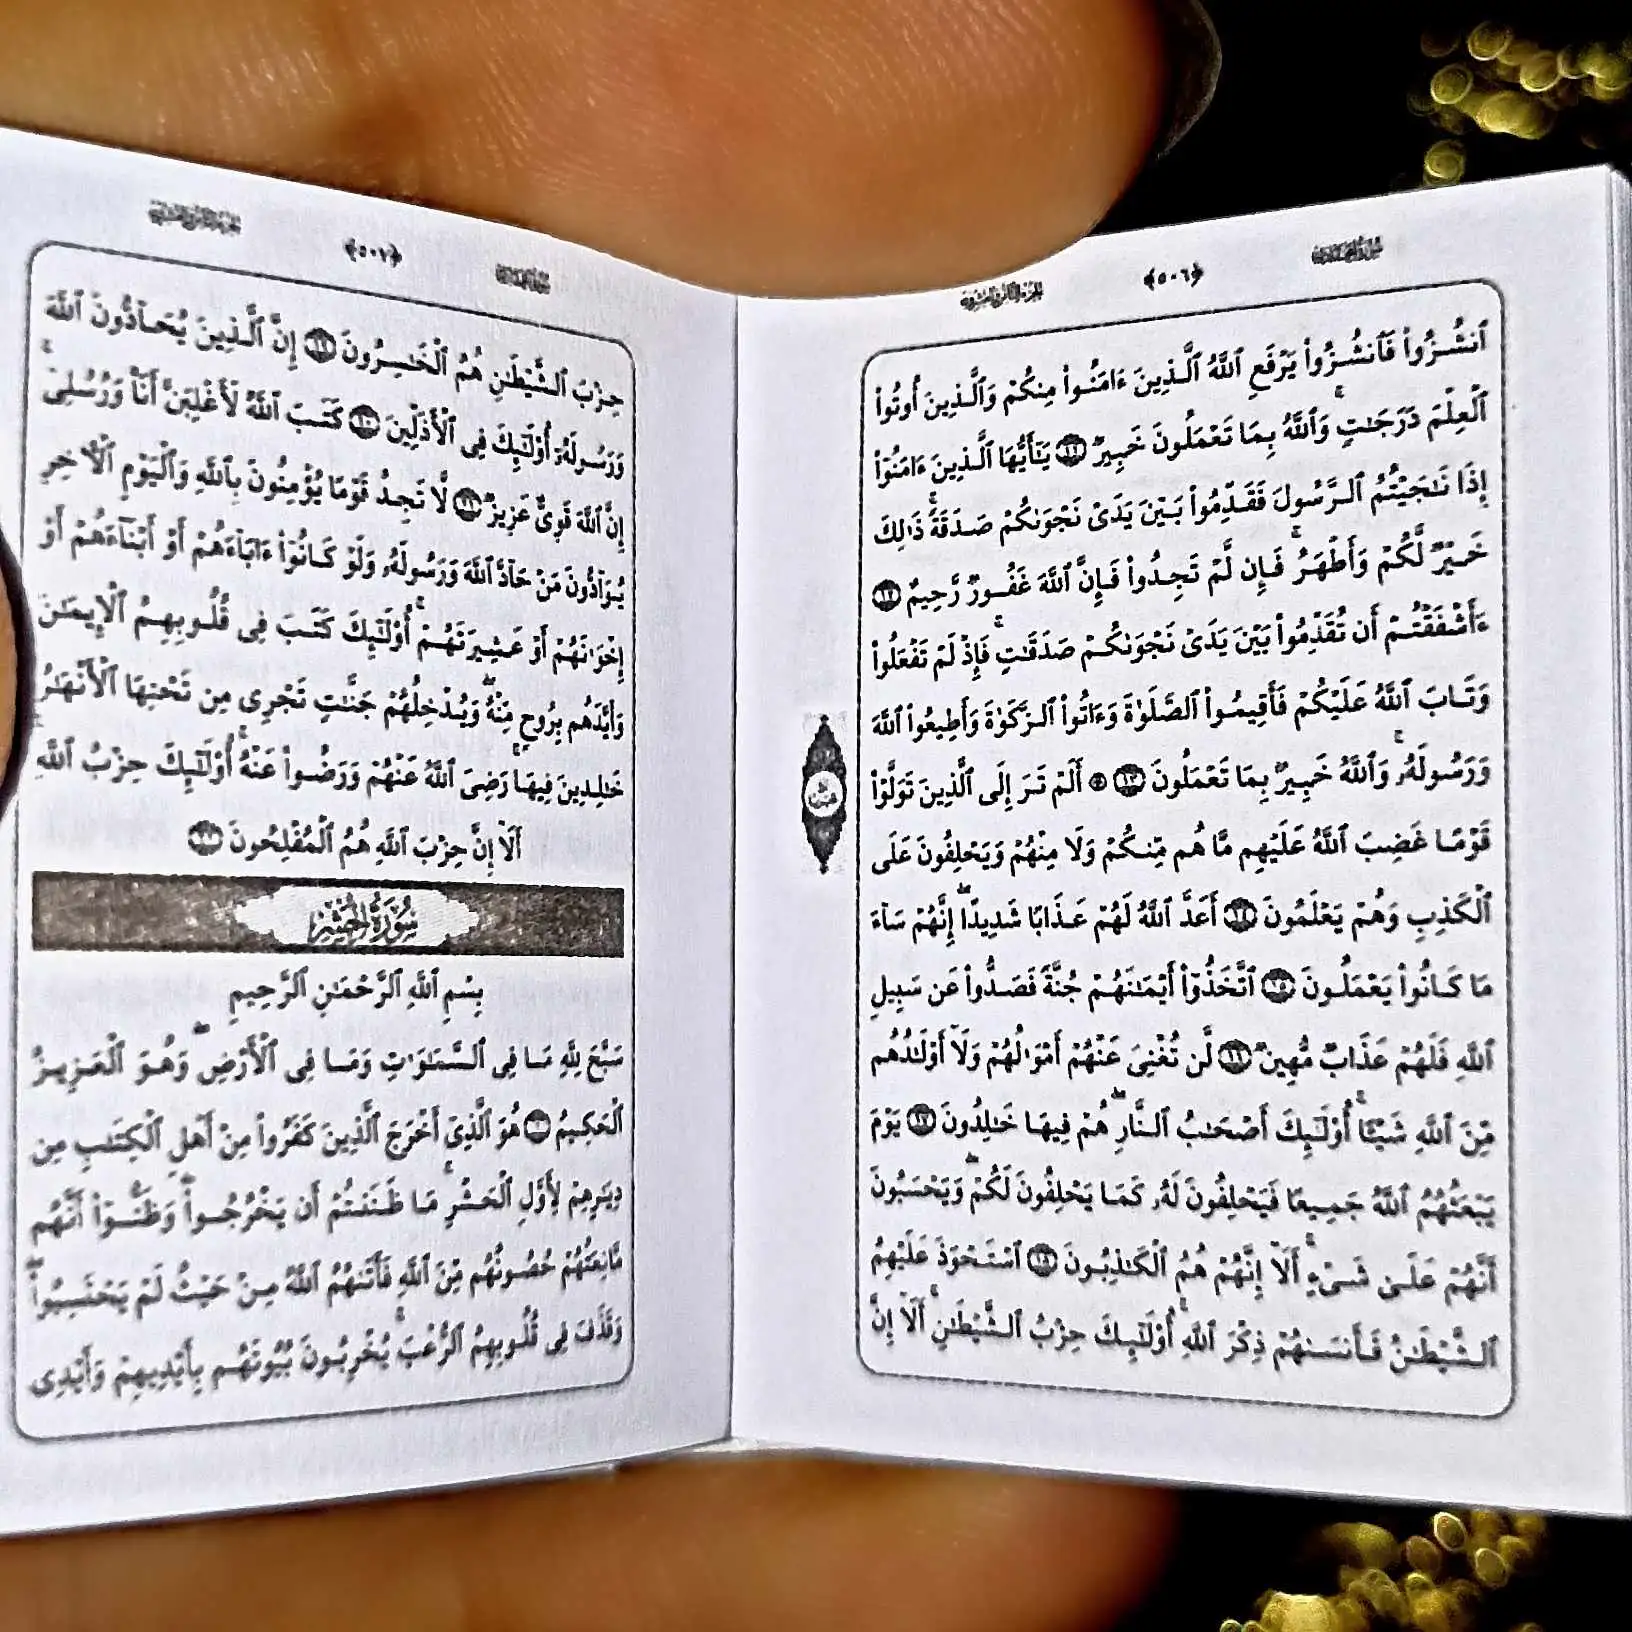 ﴿٥٠٦﴾
ٱنشُزُوا۟ فَٱنشُزُوا۟ يَرْفَعِ ٱللَّهُ ٱلَّذِينَ ءَامَنُوا۟ مِنكُمْ وَٱلَّذِينَ أُوتُوا۟
ٱلْعِلْمَ دَرَجَٰتٍۚ وَٱللَّهُ بِمَا تَعْمَلُونَ خَبِيرٌ ١١ يَٰٓأَيُّهَا ٱلَّذِينَ ءَامَنُوٓا۟
إِذَا نَٰجَيْتُمُ ٱلرَّسُولَ فَقَدِّمُوا۟ بَيْنَ يَدَىْ نَجْوَىٰكُمْ صَدَقَةًۚ ذَٰلِكَ
خَيْرٌ لَّكُمْ وَأَطْهَرُۚ فَإِن لَّمْ تَجِدُوا۟ فَإِنَّ ٱللَّهَ غَفُورٌ رَّحِيمٌ ١٢
ءَأَشْفَقْتُمْ أَن تُقَدِّمُوا۟ بَيْنَ يَدَىْ نَجْوَىٰكُمْ صَدَقَٰتٍۚ فَإِذْ لَمْ تَفْعَلُوا۟
وَتَابَ ٱللَّهُ عَلَيْكُمْ فَأَقِيمُوا۟ ٱلصَّلَوٰةَ وَءَاتُوا۟ ٱلزَّكَوٰةَ وَأَطِيعُوا۟ ٱللَّهَ
وَرَسُولَهُۥۚ وَٱللَّهُ خَبِيرٌۢ بِمَا تَعْمَلُونَ ١٣ ۞ أَلَمْ تَرَ إِلَى ٱلَّذِينَ تَوَلَّوْا۟
قَوْمًا غَضِبَ ٱللَّهُ عَلَيْهِم مَّا هُم مِّنكُمْ وَلَا مِنْهُمْ وَيَحْلِفُونَ عَلَى
ٱلْكَذِبِ وَهُمْ يَعْلَمُونَ ١٤ أَعَدَّ ٱللَّهُ لَهُمْ عَذَابًا شَدِيدًاۖ إِنَّهُمْ سَآءَ
مَا كَانُوا۟ يَعْمَلُونَ ١٥ ٱتَّخَذُوٓا۟ أَيْمَٰنَهُمْ جُنَّةً فَصَدُّوا۟ عَن سَبِيلِ
ٱللَّهِ فَلَهُمْ عَذَابٌ مُّهِينٌ ١٦ لَّن تُغْنِىَ عَنْهُمْ أَمْوَٰلُهُمْ وَلَآ أَوْلَٰدُهُم
مِّنَ ٱللَّهِ شَيْـًٔاۚ أُو۟لَٰٓئِكَ أَصْحَٰبُ ٱلنَّارِۖ هُمْ فِيهَا خَٰلِدُونَ ١٧ يَوْمَ
يَبْعَثُهُمُ ٱللَّهُ جَمِيعًا فَيَحْلِفُونَ لَهُۥ كَمَا يَحْلِفُونَ لَكُمْۖ وَيَحْسَبُونَ
أَنَّهُمْ عَلَىٰ شَىْءٍۚ أَلَآ إِنَّهُمْ هُمُ ٱلْكَٰذِبُونَ ١٨ ٱسْتَحْوَذَ عَلَيْهِمُ
ٱلشَّيْطَٰنُ فَأَنسَىٰهُمْ ذِكْرَ ٱللَّهِۚ أُو۟لَٰٓئِكَ حِزْبُ ٱلشَّيْطَٰنِۚ أَلَآ إِنَّ
﴿٥٠٧﴾
حِزْبَ ٱلشَّيْطَٰنِ هُمُ ٱلْخَٰسِرُونَ ١٩ إِنَّ ٱلَّذِينَ يُحَآدُّونَ ٱللَّهَ
وَرَسُولَهُۥٓ أُو۟لَٰٓئِكَ فِى ٱلْأَذَلِّينَ ٢٠ كَتَبَ ٱللَّهُ لَأَغْلِبَنَّ أَنَا۠ وَرُسُلِىٓۚ
إِنَّ ٱللَّهَ قَوِىٌّ عَزِيزٌ ٢١ لَّا تَجِدُ قَوْمًا يُؤْمِنُونَ بِٱللَّهِ وَٱلْيَوْمِ ٱلْءَاخِرِ
يُوَآدُّونَ مَنْ حَآدَّ ٱللَّهَ وَرَسُولَهُۥ وَلَوْ كَانُوٓا۟ ءَابَآءَهُمْ أَوْ أَبْنَآءَهُمْ أَوْ
إِخْوَٰنَهُمْ أَوْ عَشِيرَتَهُمْۚ أُو۟لَٰٓئِكَ كَتَبَ فِى قُلُوبِهِمُ ٱلْإِيمَٰنَ
وَأَيَّدَهُم بِرُوحٍ مِّنْهُۖ وَيُدْخِلُهُمْ جَنَّٰتٍ تَجْرِى مِن تَحْتِهَا ٱلْأَنْهَٰرُ
خَٰلِدِينَ فِيهَاۚ رَضِىَ ٱللَّهُ عَنْهُمْ وَرَضُوا۟ عَنْهُۚ أُو۟لَٰٓئِكَ حِزْبُ ٱللَّهِۚ
أَلَآ إِنَّ حِزْبَ ٱللَّهِ هُمُ ٱلْمُفْلِحُونَ ٢٢
سُورَةُ الحَشْرِ
بِسْمِ ٱللَّهِ ٱلرَّحْمَٰنِ ٱلرَّحِيمِ
سَبَّحَ لِلَّهِ مَا فِى ٱلسَّمَٰوَٰتِ وَمَا فِى ٱلْأَرْضِۖ وَهُوَ ٱلْعَزِيزُ
ٱلْحَكِيمُ ١ هُوَ ٱلَّذِىٓ أَخْرَجَ ٱلَّذِينَ كَفَرُوا۟ مِنْ أَهْلِ ٱلْكِتَٰبِ مِن
دِيَٰرِهِمْ لِأَوَّلِ ٱلْحَشْرِۚ مَا ظَنَنتُمْ أَن يَخْرُجُوا۟ۖ وَظَنُّوٓا۟ أَنَّهُم
مَّانِعَتُهُمْ حُصُونُهُم مِّنَ ٱللَّهِ فَأَتَىٰهُمُ ٱللَّهُ مِنْ حَيْثُ لَمْ يَحْتَسِبُوا۟ۖ
وَقَذَفَ فِى قُلُوبِهِمُ ٱلرُّعْبَۚ يُخْرِبُونَ بُيُوتَهُم بِأَيْدِيهِمْ وَأَيْدِى